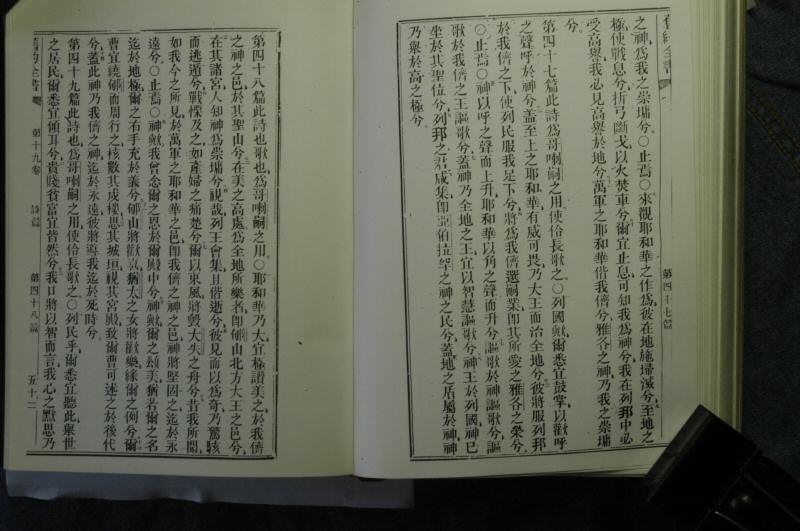 舊約全書
之神、為我之崇墉兮、○止焉○來觀耶和華之作為、彼在地施掃滅兮、至地之
極、使戰息兮、折弓斷戈、以火焚車兮、爾宜止息、可知我為神兮、我在列邦中必
受高舉、我必見高舉於地兮、萬軍之耶和華偕我儕兮、雅各之神乃我之崇墉
兮。
第四十七篇此詩為哥喇嗣之用使伶長歌之。○列國歟、爾悉宜鼓掌、以歡呼
之聲呼於神兮、蓋至上之耶和華、有威可畏、乃大王而治全地兮、彼將服列邦
於我儕之下、使列民服我足下兮、將為我儕選嗣業、即其所愛之雅各之榮兮、
○止焉○神以呼之聲而上升、耶和華以角之聲而升兮、謳歌於神、謳歌兮、謳
歌於我儕之王、謳歌兮、蓋神乃全地之王、宜以智慧謳歌兮、神王於列國、神已
坐於其聖位兮、列邦之君咸集、即亞伯拉罕之神之民兮、蓋地之盾屬於神、神
乃舉於高之極兮。
第四十七篇
第四十八篇此詩也歌也為哥喇嗣之用。○耶和華乃大、宜極讚美之、於我儕
之神之邑、於其聖山兮、在美之高處、為全地所樂者、即郇山北方大王之邑兮、
在其諸宮、人知神為崇墉兮、視哉列王會集、且偕逝兮、彼見而以為奇、乃驚駭
而逃遁兮、戰慄及之、如產婦之痛楚兮、爾以東風、將毀大失之舟兮、昔我所聞、
如我今之所見、於萬軍之耶和華之邑、即我儕之神之邑、神將堅固之、迄於永
遠兮、○止焉○神歟、我曾念爾之恩於爾殿中兮、神歟、爾之頌美、猶若爾之名、
迄於地極、爾之右手充於義兮、郇山將歡喜、猶太之女將歡樂、緣爾之例兮、爾
曹宜繞郇而周行之、核數其戍樓、思其城垣、視其宮殿、致爾曹可述之於後代
兮、蓋此神乃我儕之神、迄於永遠、彼將導我迄於死時兮。
第四十九篇此詩也為哥喇嗣之用使伶長歌之○列民乎、爾悉宜聽此、舉世
之居民、爾悉宜傾耳兮、貴賤貧富、宜皆然兮、我口將以智而言、我心之默思乃
舊約全書
第十九卷
詩篇
第四十八篇
五十二